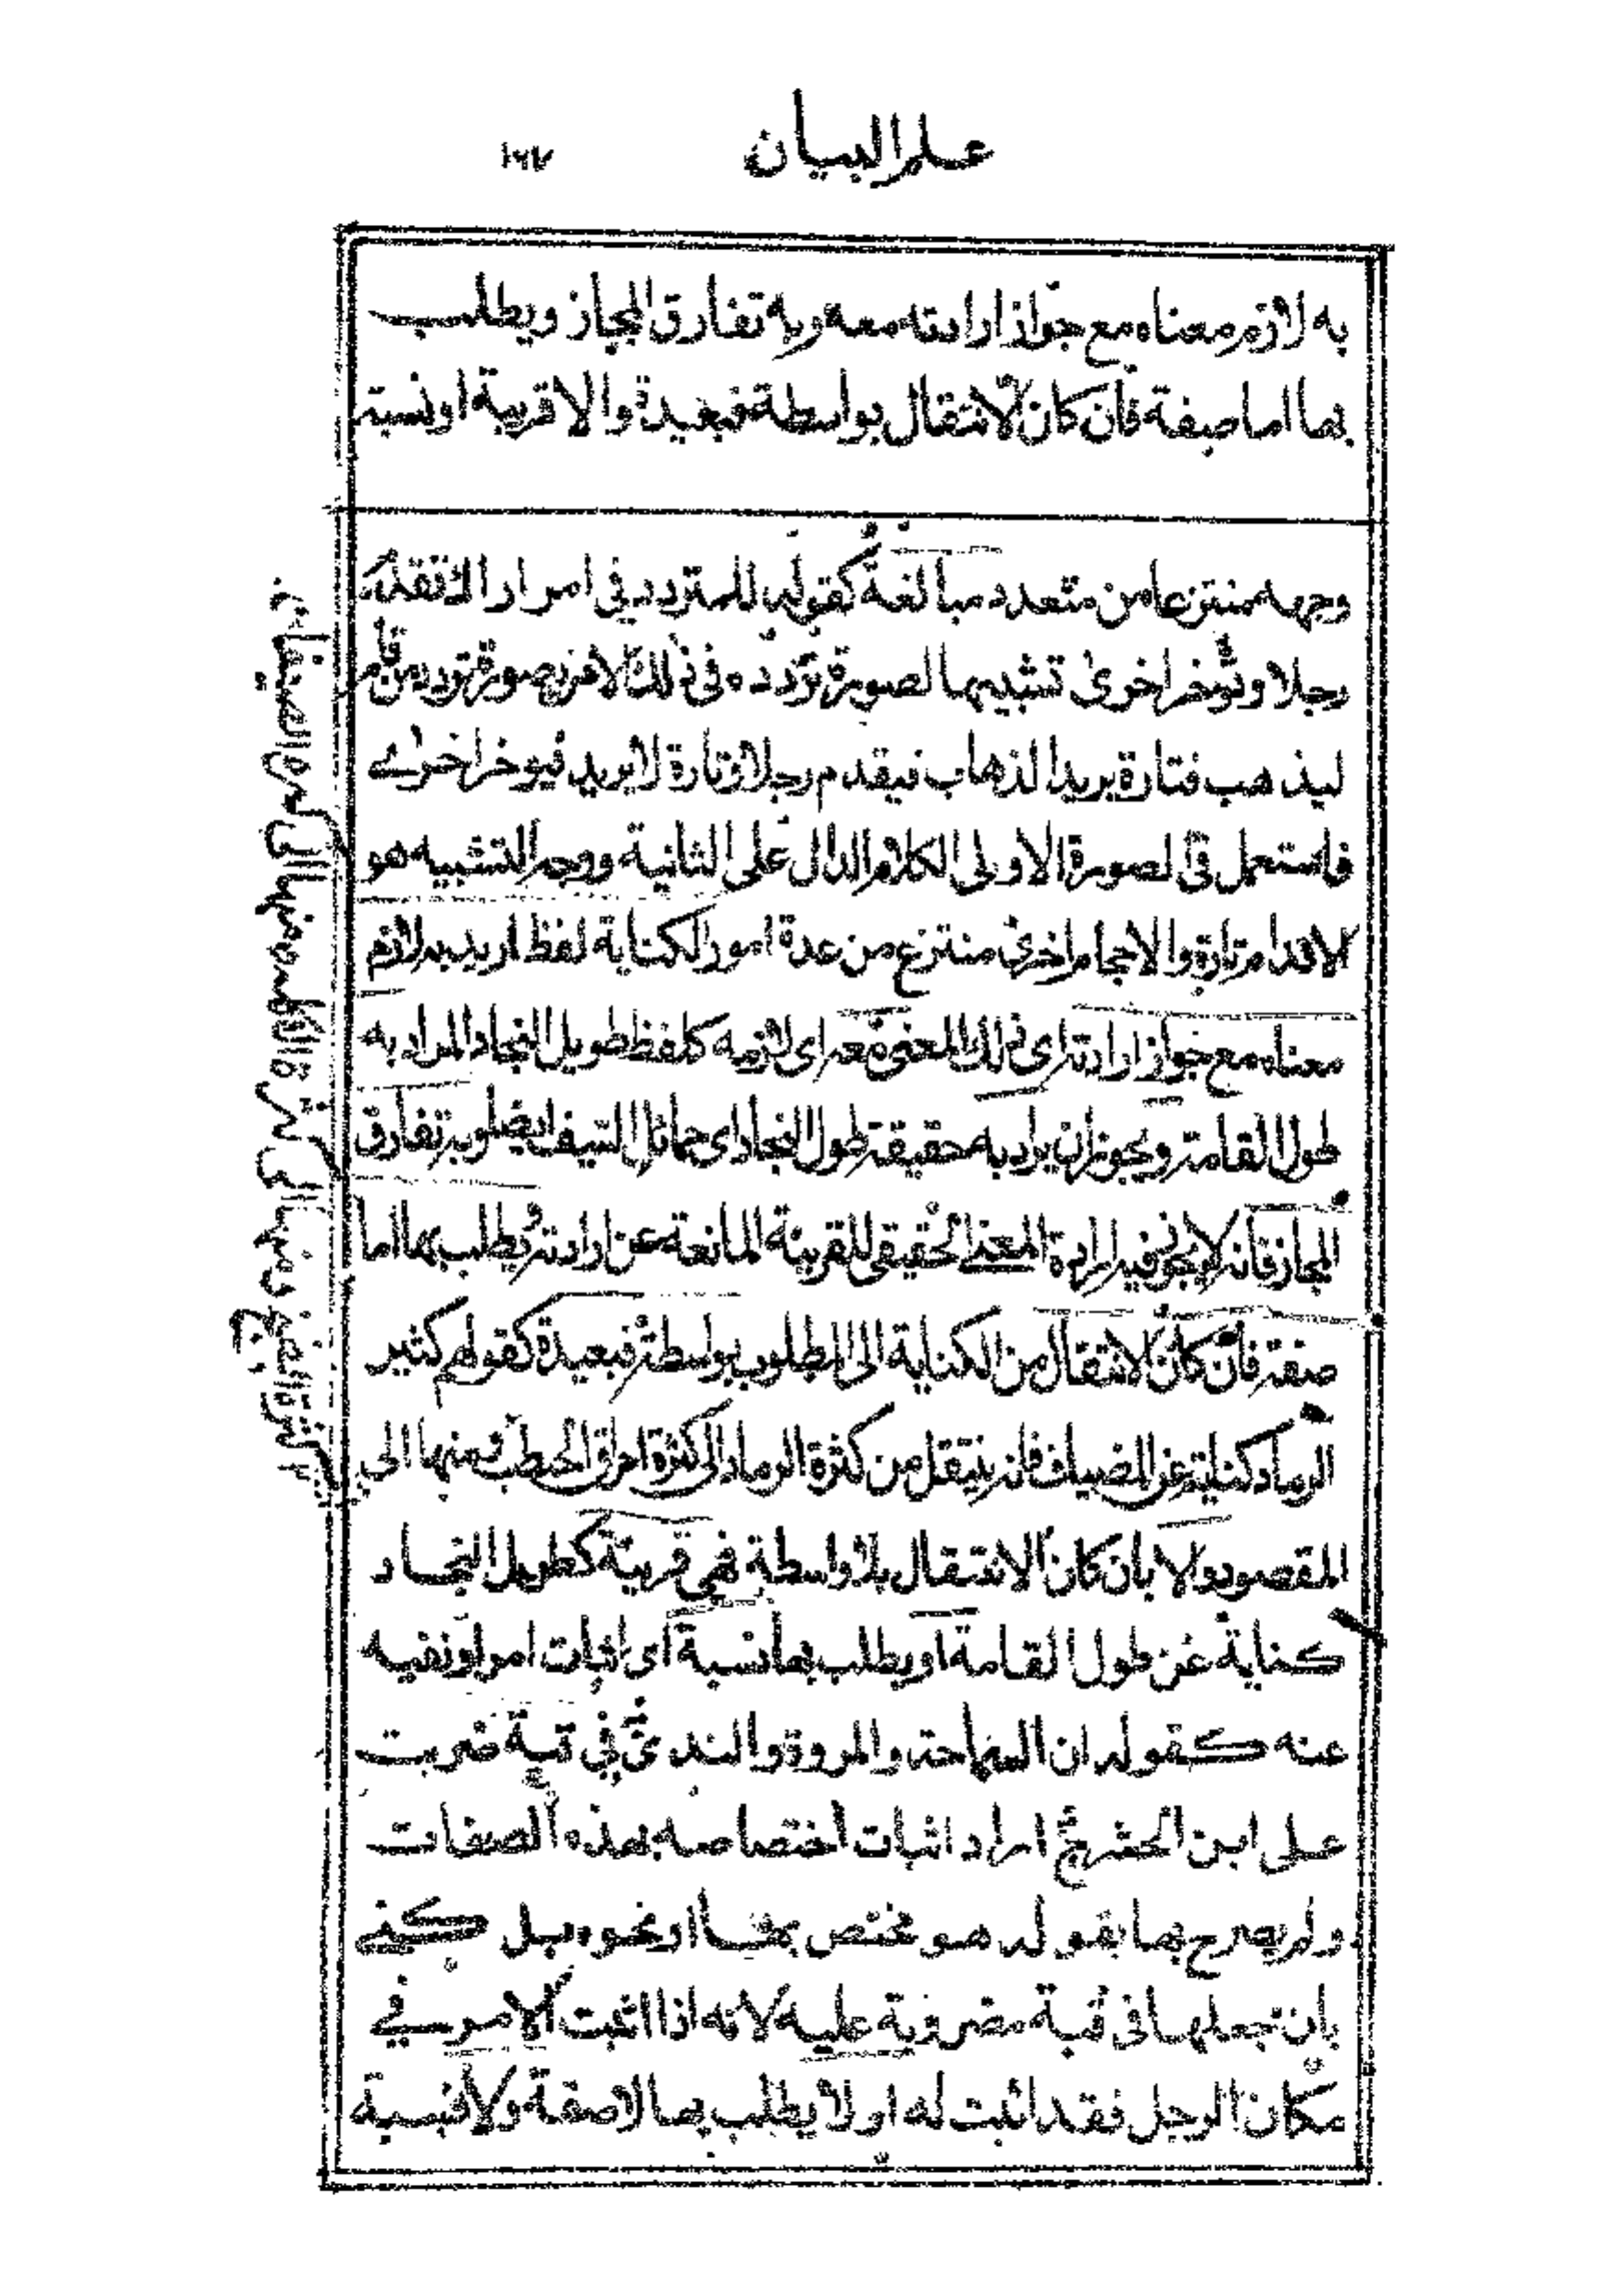 علم البيان ١٦٧
به لازم معناه مع جواز ارادته معه وبه تفارق المجاز ويطلب
بها اما صفة فان كان الانتقال بواسطة فبعيدة والا قريبة او نسبة
وجهه منتزعا من متعدد مبالغة كقوله للمتردد في امر اراك تقدم
رجلا وتؤخر اخرى تشبيها لصورة تردده في ذلك الامر بصورة تردد من قام
ليذهب فتارة يريد الذهاب فيقدم رجلا وتارة لا يريد فيؤخر اخرى
فاستعمل في الصورة الاولى الكلام الدال على الثانية ووجه التشبيه هو
الاقدام تارة والاحجام اخرى منتزع من عدة امور الكناية لفظ اريد به لازم
معناه مع جواز ارادته اى ذلك المعنى معه اى لازمه كلفظ طويل النجاد المراد به
طول القامة ويجوز ان يراد به حقيقة طول النجاد اى حمائل السيف ايضا وبه تفارق
المجاز فانه لا يجوز فيه ارادة المعنى الحقيقى للقرينة المانعة عن ارادته ويطلب بها اما
صفة فان كان الانتقال من الكناية الى المطلوب بواسطة فبعيدة كقولهم كثير
الرماد كناية عن المضياف فانه ينتقل من كثرة الرماد الى كثرة احراق الحطب ومنها الى
المقصود والا بان كان الانتقال بلا واسطة فهى قريبة كطويل النجاد
كناية عن طول القامة او يطلب بها نسبة اى اثبات امر او نفيه
عنه كقوله ان السماحة والمروة والندى في قبة ضربت
على ابن الحشرج اراد اثبات اختصاصه بهذه الصفات
ولم يصرح بها بقوله هو مختص بها او نحوه بل كنى
بان جعلها فى قبة مضروبة عليه لانه اذا اثبت الامر في
مكان الرجل فقد اثبت له او لا يطلب بها لا صفة ولا نسبة